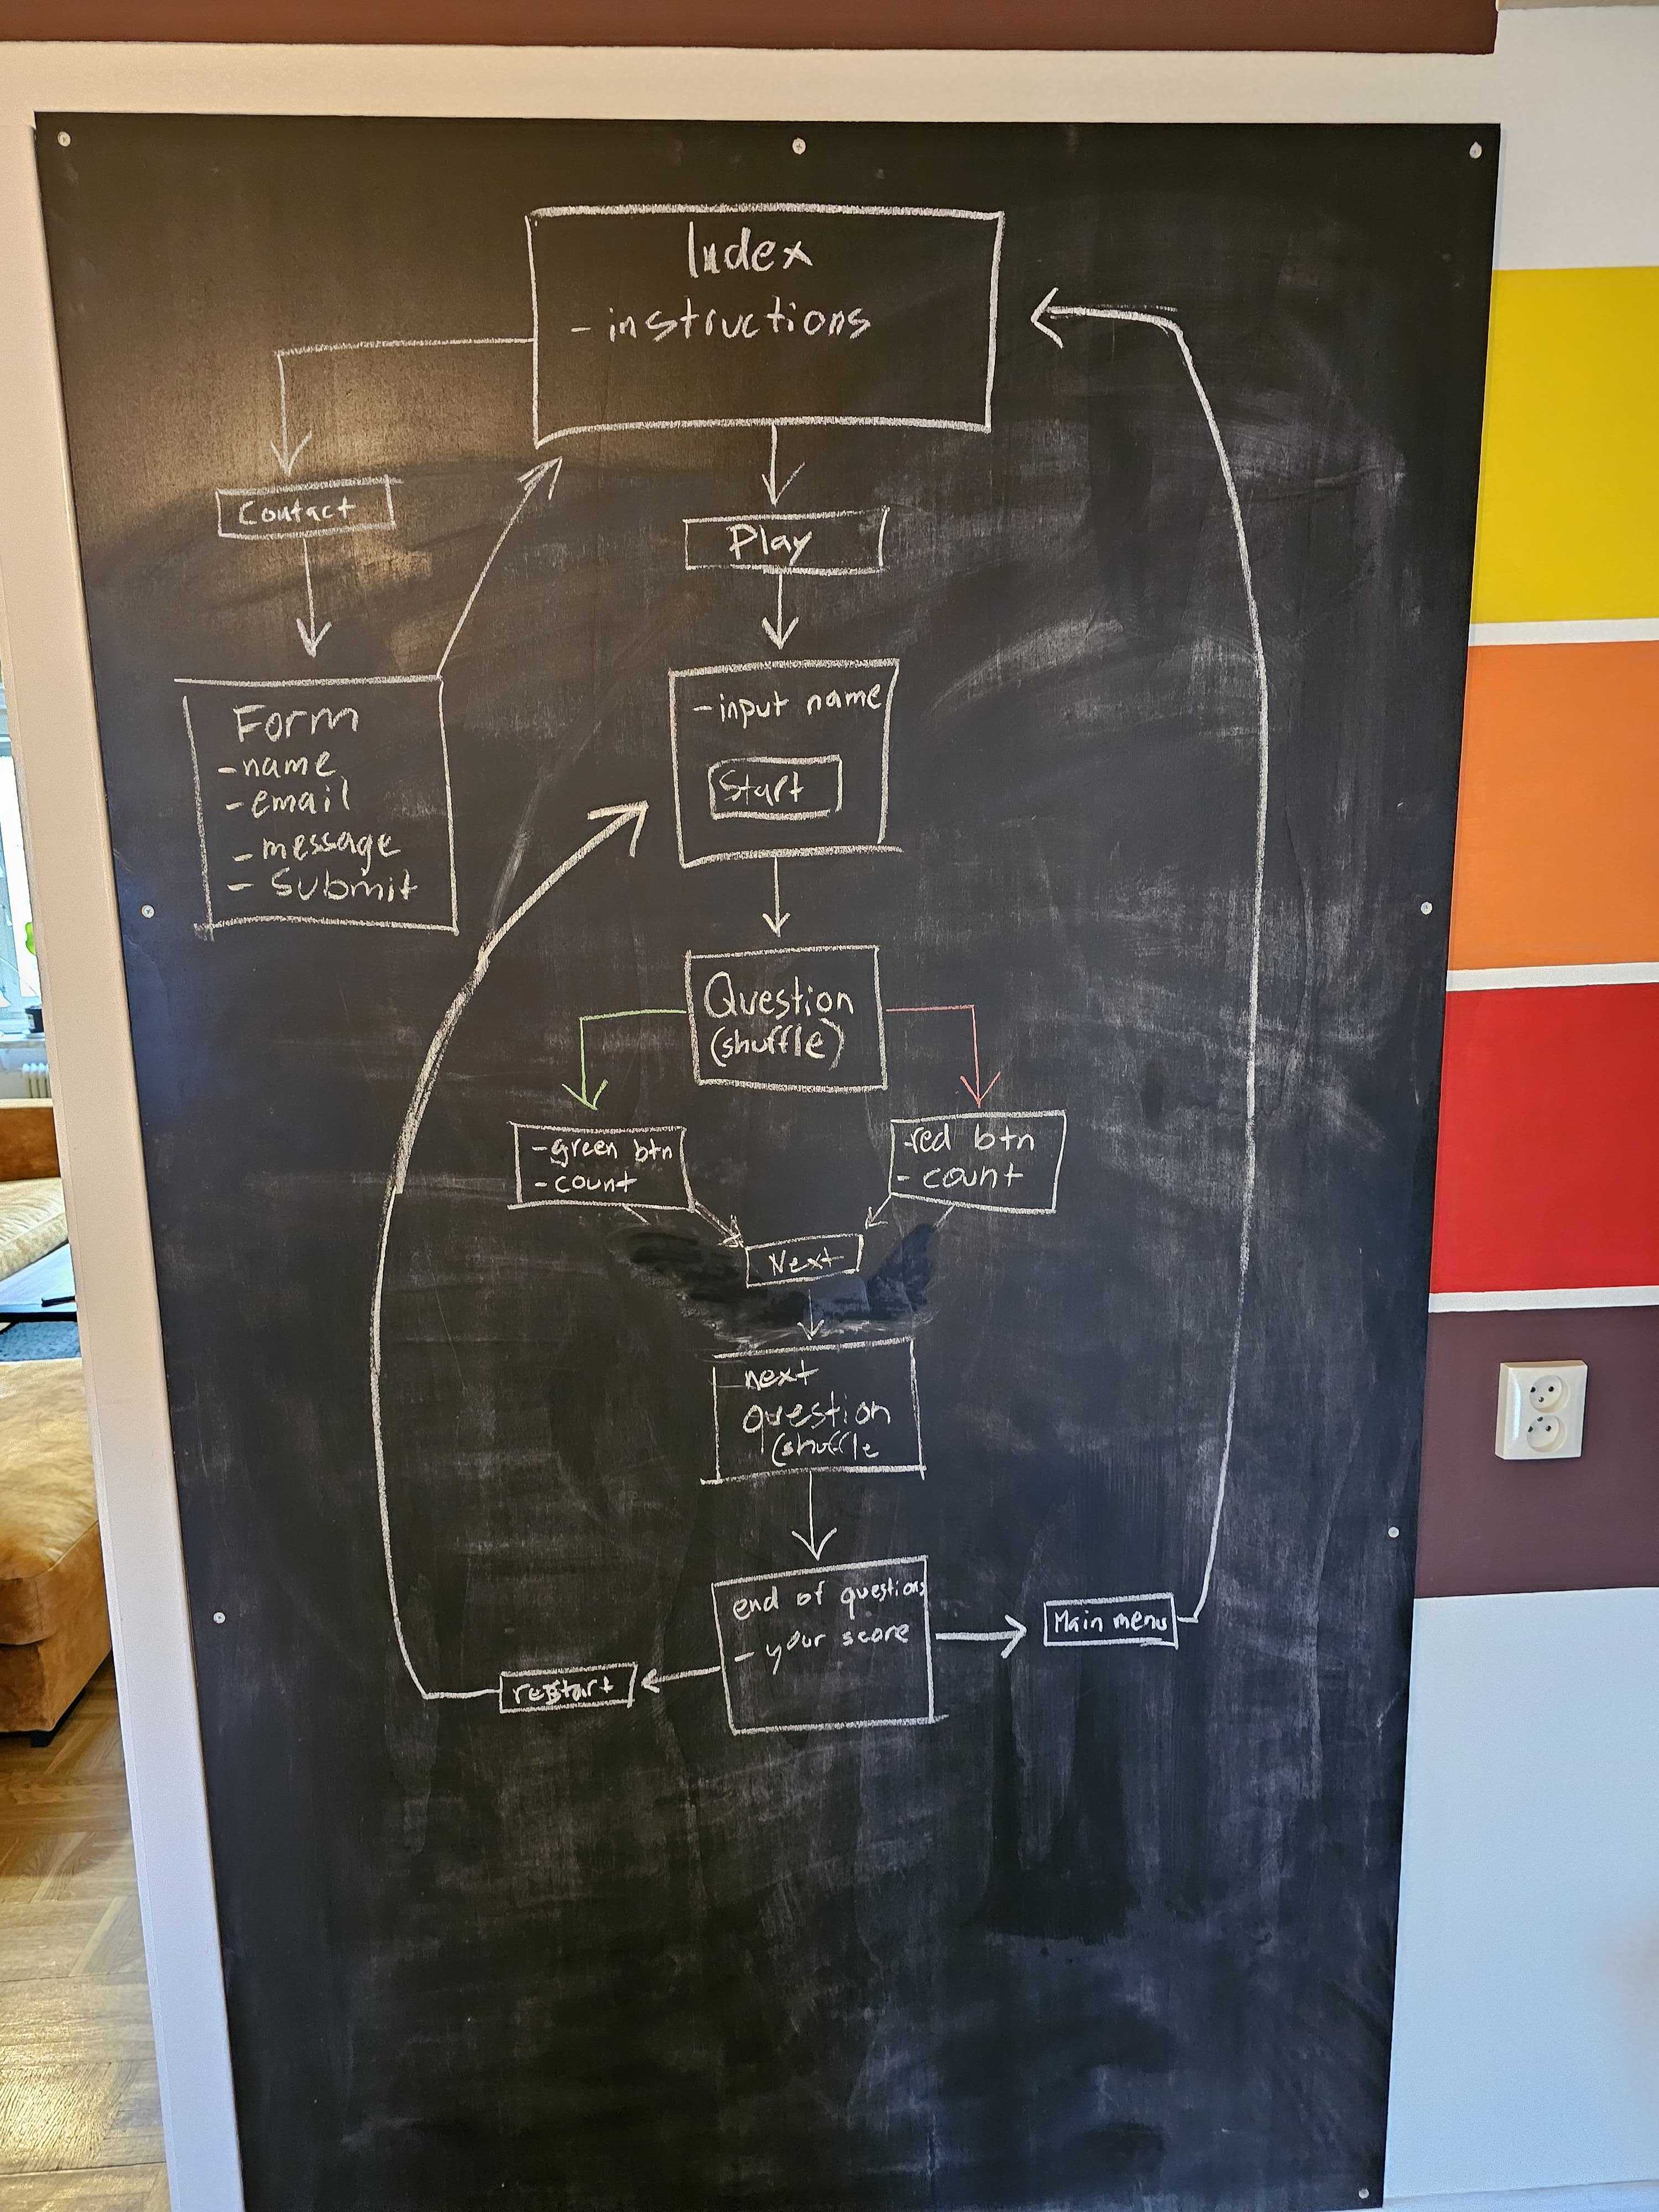 Index
- instructions
Contact
Play
Form
- name
- email
- message
- Submit
- input name
Start
Question
(shuffle)
- green btn
- count
- red btn
- count
Next
next
question
(shuffle
end of questions
- your score
Main menu
restart